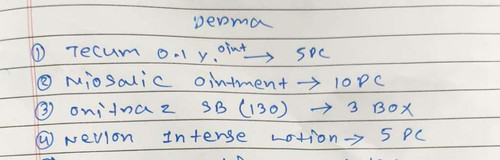 Derma
① Tecum 0.1 %. oint → 5 PC
② Miosalic ointment → 10 PC
③ Onitraz SB (130) → 3 BOX
④ Nevlon Intense Lotion → 5 PC